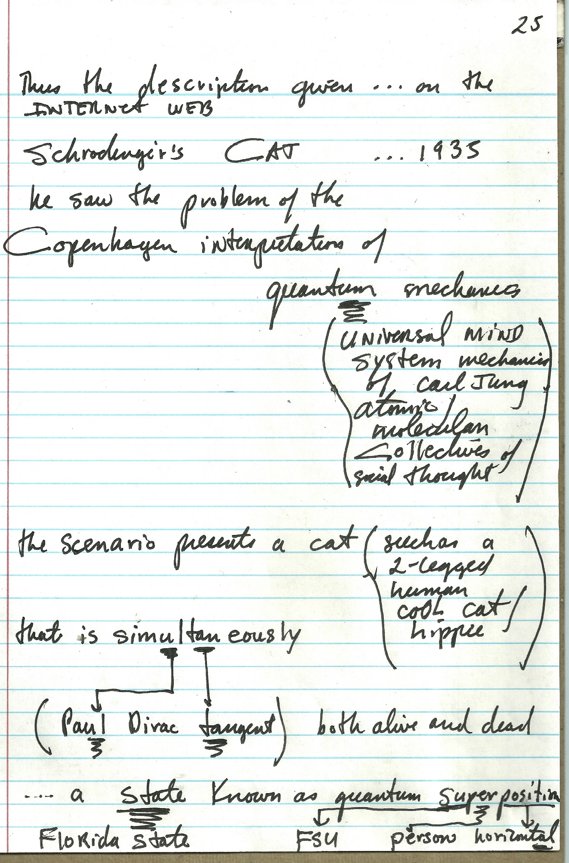 25
Thus the description given ... on the
INTERNET WEB
Schrodenger's CAT ... 1935
he saw the problem of the
Copenhagen interpretation of
quantum mechanics
(UNIVERSAL MIND
system mechanics
of Carl Jung
atomic/
molecular
Collectives of
social thought)
the scenario presents a cat (such as a
2-legged
human
cool cat/
hippee)
that is simultaneously
(Paul Dirac tangent) both alive and dead
.... a state known as quantum superposition
Florida State FSU person horizontal